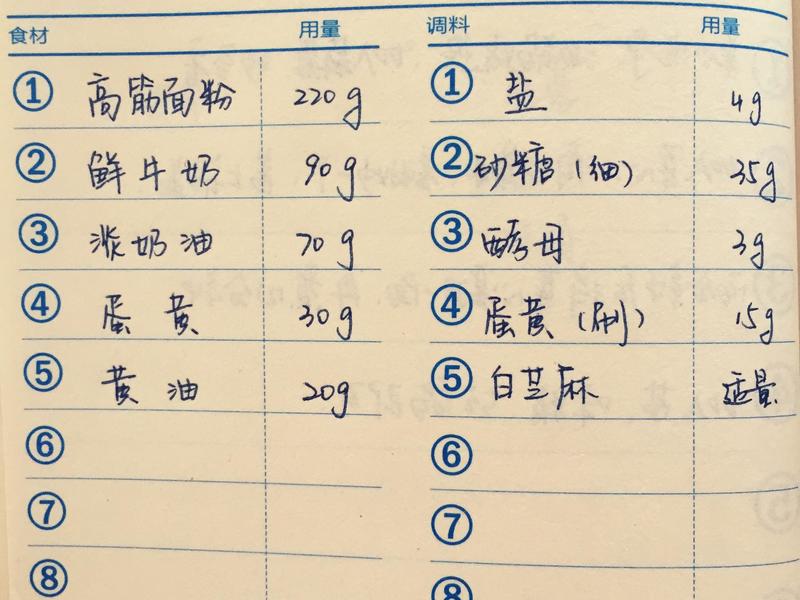 食材 用量 调料 用量
① 高筋面粉 220g ① 盐 4g
② 鲜牛奶 90g ② 砂糖(细) 35g
③ 淡奶油 70g ③ 酵母 3g
④ 蛋黄 30g ④ 蛋黄(刷) 15g
⑤ 黄油 20g ⑤ 白芝麻 适量
⑥ ⑥
⑦ ⑦
⑧ ⑧